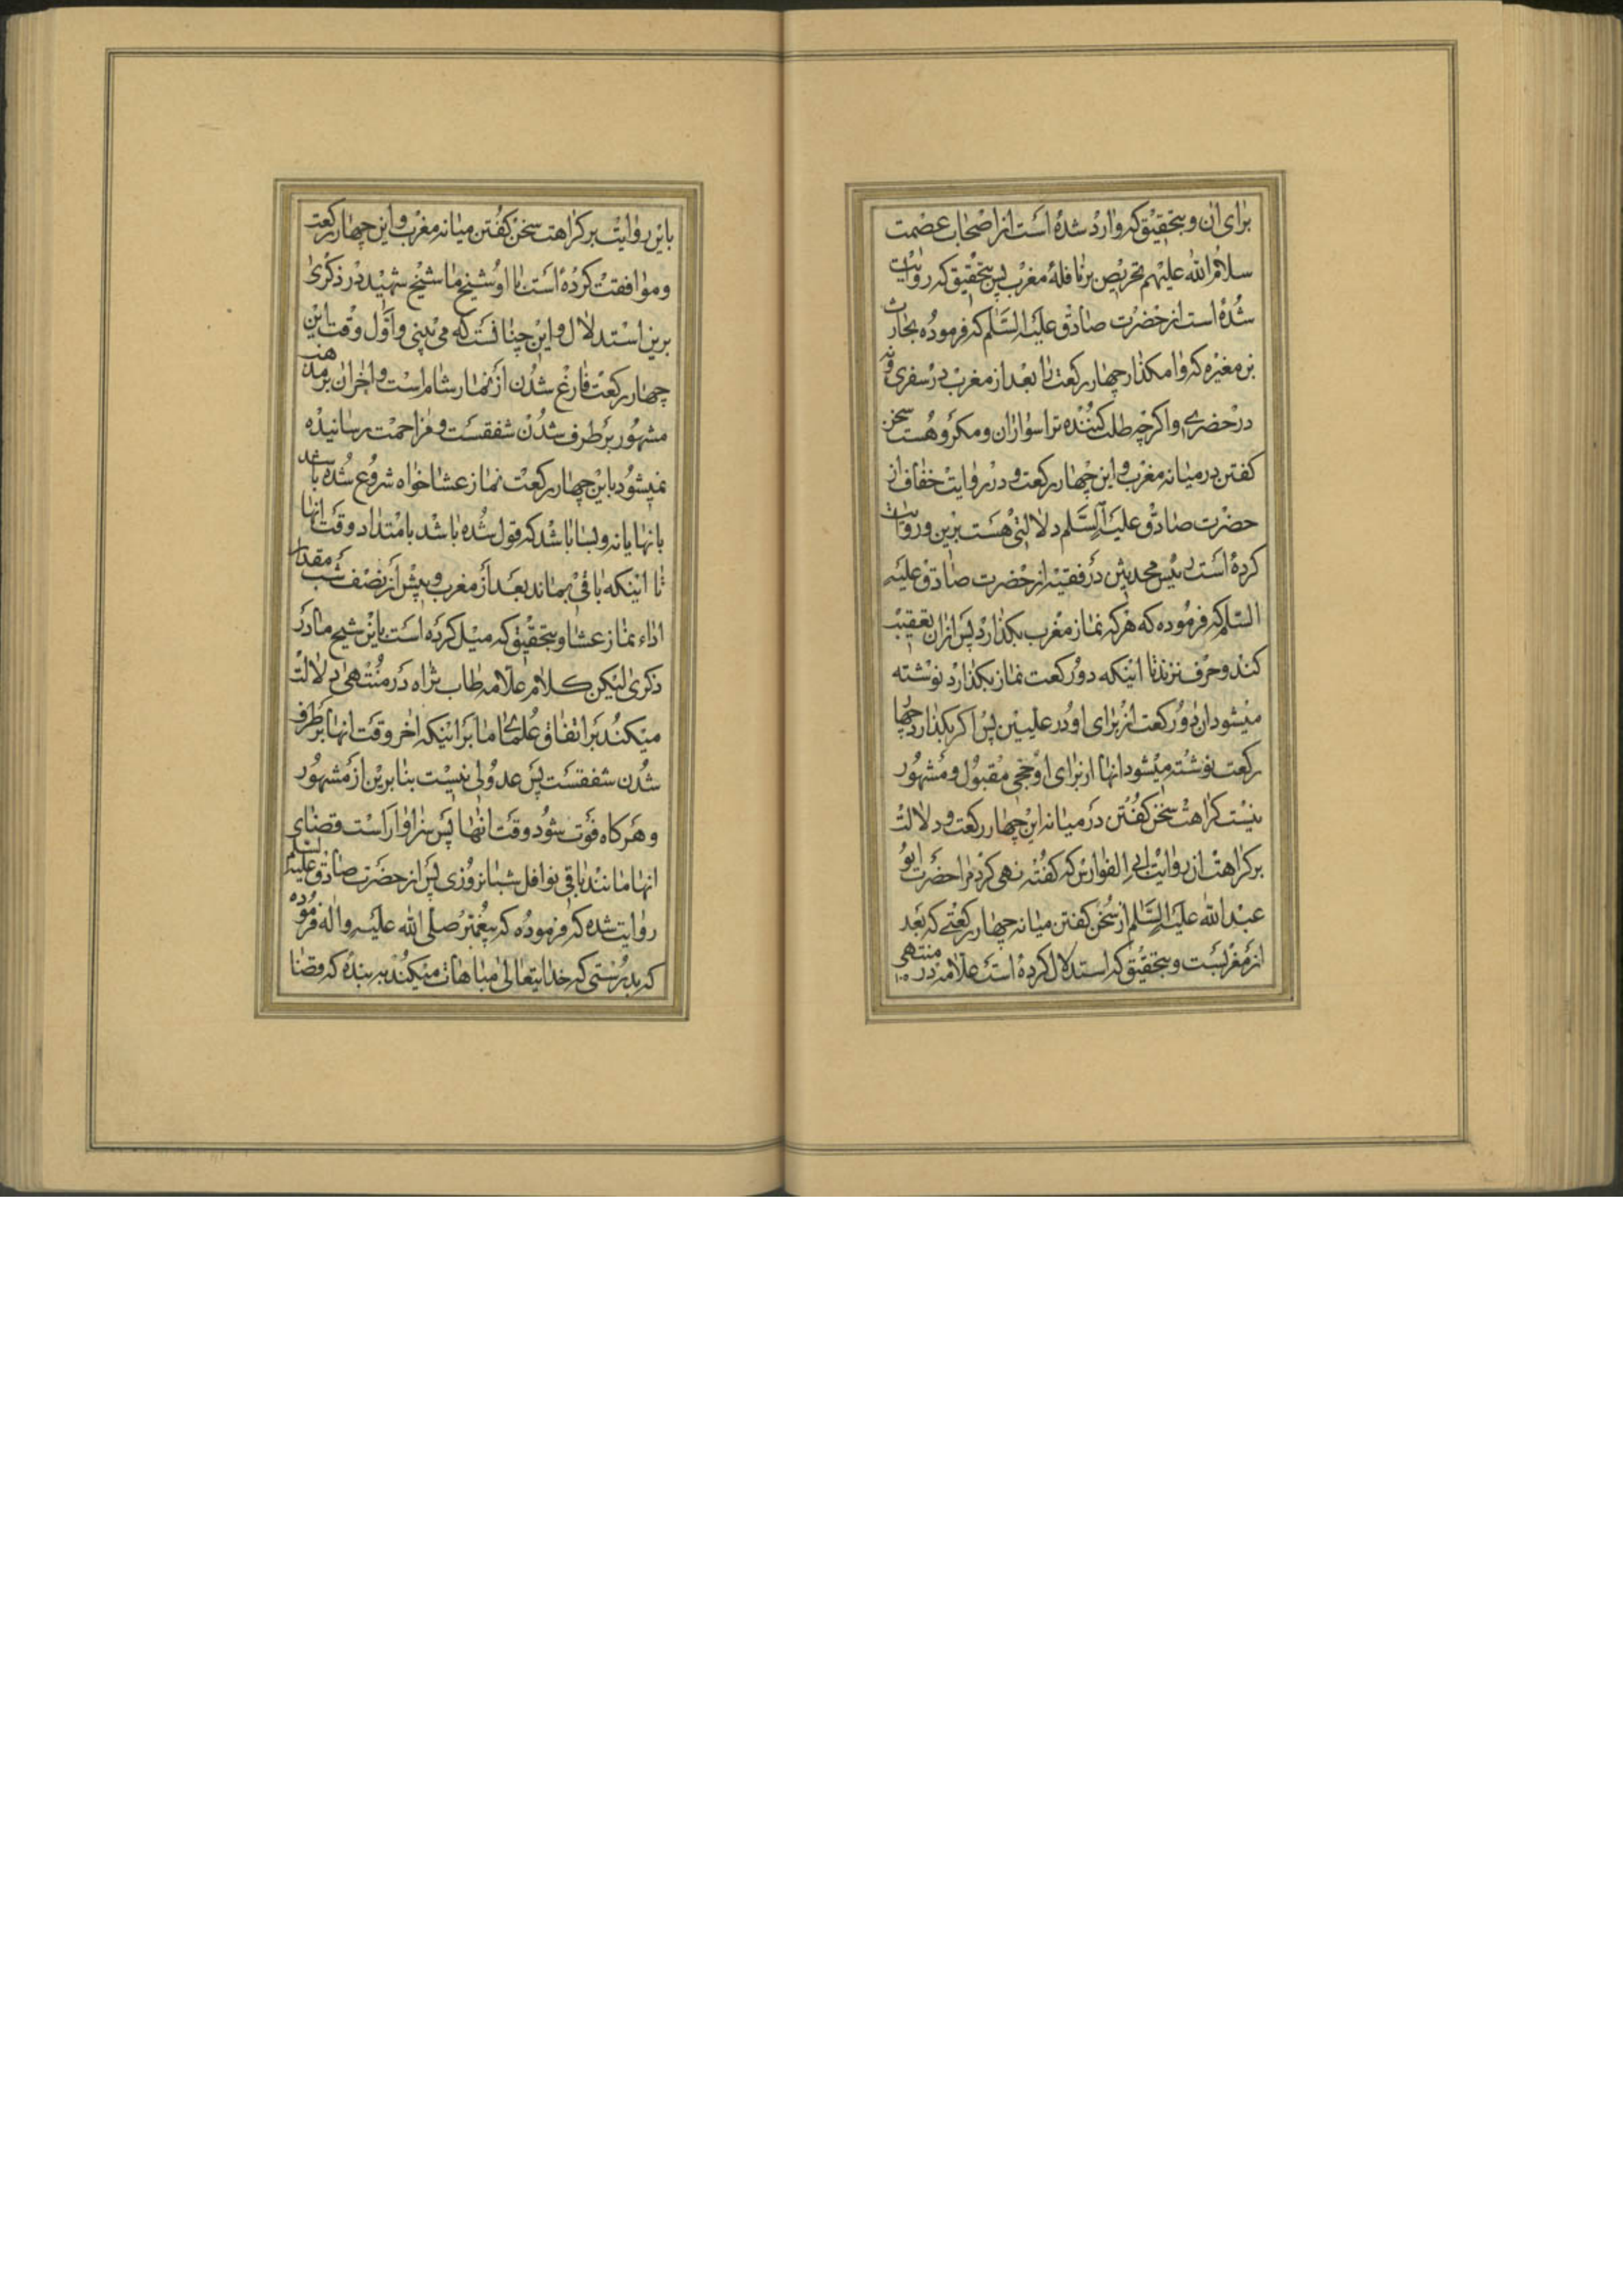 برای ان و بتحقیق که وارد شده است از اصحاب عصمت
سلام الله علیهم تحریص بر نافلهٔ مغرب پس بتحقیق که روایت
شده است از حضرت صادق علیه السلم که فرموده بحارث
بن مغیره که وامکذار چهار رکعت را بعد از مغرب در سفری و نه
در حضری و اکرچه طلب کننده ترا سواران و مکروهست سخن
کفتن در میانه مغرب و این چهار رکعت و در روایت خفاف از
حضرت صادق علیه السلم دلالتی هست برین و روایت
کرده است رئیس محدیثن در فقیه از حضرت صادق علیه
السلم که فرموده که هرکه نماز مغرب بکذارد پس از ان تعقیب
کند و حرف نزند تا اینکه دو رکعت نماز بکذارد نوشته
میشود ان دو رکعت از برای او در علیین پس اکر بکذارد چهار
رکعت نوشته میشود انها از برای او حجی مقبول و مشهور
نیست کراهت سخن کفتن در میانه این چهار رکعت و دلالت
بر کراهت ان روایت ابی الفوارس که کفته نهی کرد مرا حضرت ابو
عبد الله علیه السلم از سخن کفتن میانه چهار رکعتی که بعد
از مغربست و بتحقیق که استدلال کرده است علامه در منتهی
باین روایت بر کراهت سخن کفتن میانه مغرب و این چهار رکعت
و موافقت کرده است با او شیخ ما شیخ شهید در ذکری
برین استدلال و این چنانست که می بینی و اول وقت این
چهار رکعت فارغ شدن از نماز شام است و اخر ان بر مذهب
مشهور برطرف شدن شفقست و مزاحمت رسانیده
نمیشود باین چهار رکعت نماز عشا خواه شروع شده باشد
بانها یا نه و بسا باشد که قول شده باشد بامتداد وقت انها
تا اینکه باقی بماند بعد از مغرب و پیش از نصف شب مقدار
اداء نماز عشا و بتحقیق که میل کرده است باین شیخ ما در
ذکری لیکن کلام علامه طاب ثراه در منتهی دلالت
میکند بر اتفاق علمای ما بر اینکه اخر وقت انها برطرف
شدن شفقست پس عدولی نیست بنا برین از مشهور
و هر کاه فوت شود وقت انها پس سزاوار است قضای
انها مانند باقی نوافل شبانروزی پس از حضرت صادق علیه السلم
روایت شده که فرموده که پیغمبر صلی الله علیه و اله فرموده
که بدرستی که خدایتعالی مباهات میکند به بنده که قضا